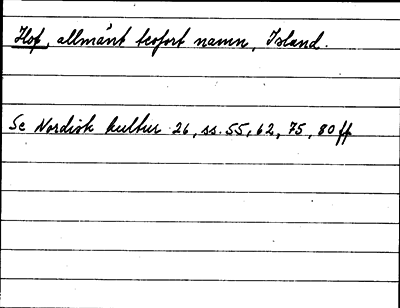 Hof, allmänt teofort namn, Island.
Se Nordisk kultur 26, ss. 55, 62, 75, 80 ff